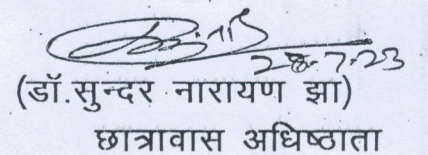 28-7-23
(डॉ.सुन्दर नारायण झा)
छात्रावास अधिष्ठाता